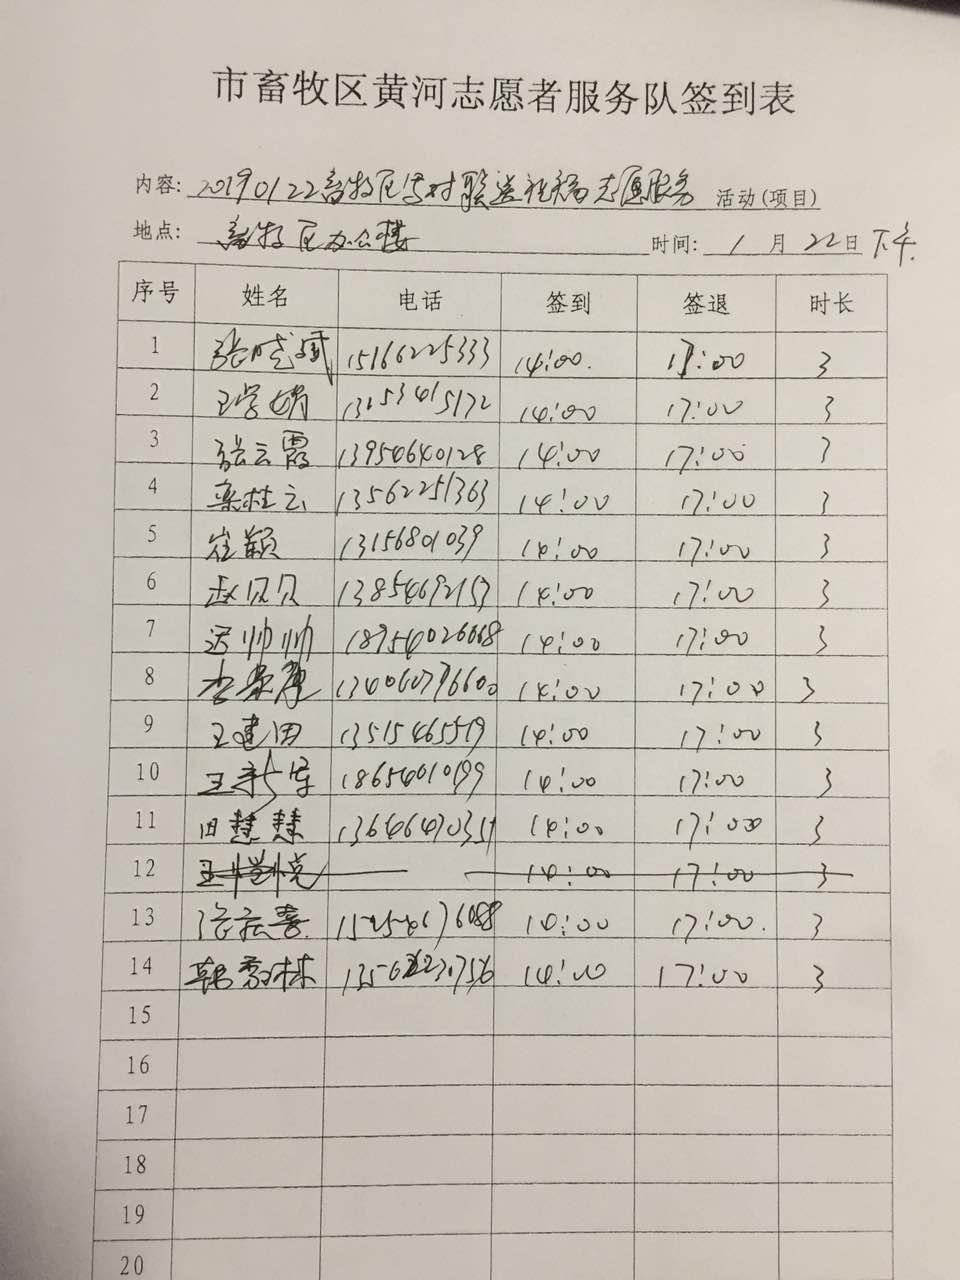 市畜牧区黄河志愿者服务队签到表
内容: 20190122畜牧区写对联送祝福志愿服务 活动(项目)
地点: 畜牧区办公楼 时间: 1 月 22 日 下午
序号 姓名 电话 签到 签退 时长
1 15166225333 14:00 17:00 3
2 王学娟 14:00 17:00 3
3 张云霞 13954640128 14:00 17:00 3
4 栾桂云 13562251363 14:00 17:00 3
5 崔颖 13156801039 14:00 17:00 3
6 赵贝贝 13854692153 14:00 17:00 3
7 帅帅 18954026668 14:00 17:00 3
8 134060796600 14:00 17:00 3
9 王建田 13515465519 14:00 17:00 3
10 18654610199 14:00 17:00 3
11 田慧慧 14:00 17:00 3
12 14:00 17:00 3
13 14:00 17:00 3
14 14:00 17:00 3
15
16
17
18
19
20